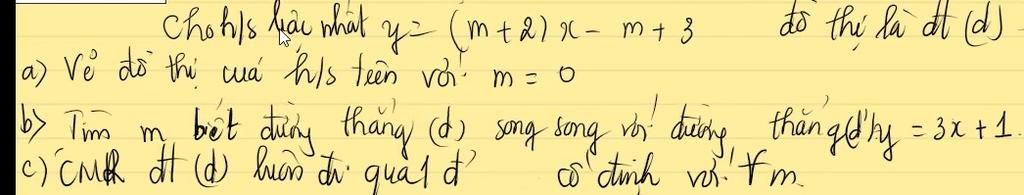 Cho h/s bậc nhất y = (m+2)x - m + 3 đồ thị là đt (d)
a) Vẽ đồ thị cuả h/s trên với m = 0
b) Tìm m biết đường thẳng (d) song song với đường thẳng (d') y = 3x + 1.
c) CMR đt (d) luôn đi qua 1 đ' cố định với ∀ m.